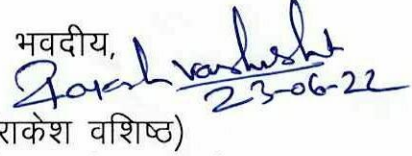 भवदीय,
Rakesh Vashisht
23-06-22
राकेश वशिष्ठ)